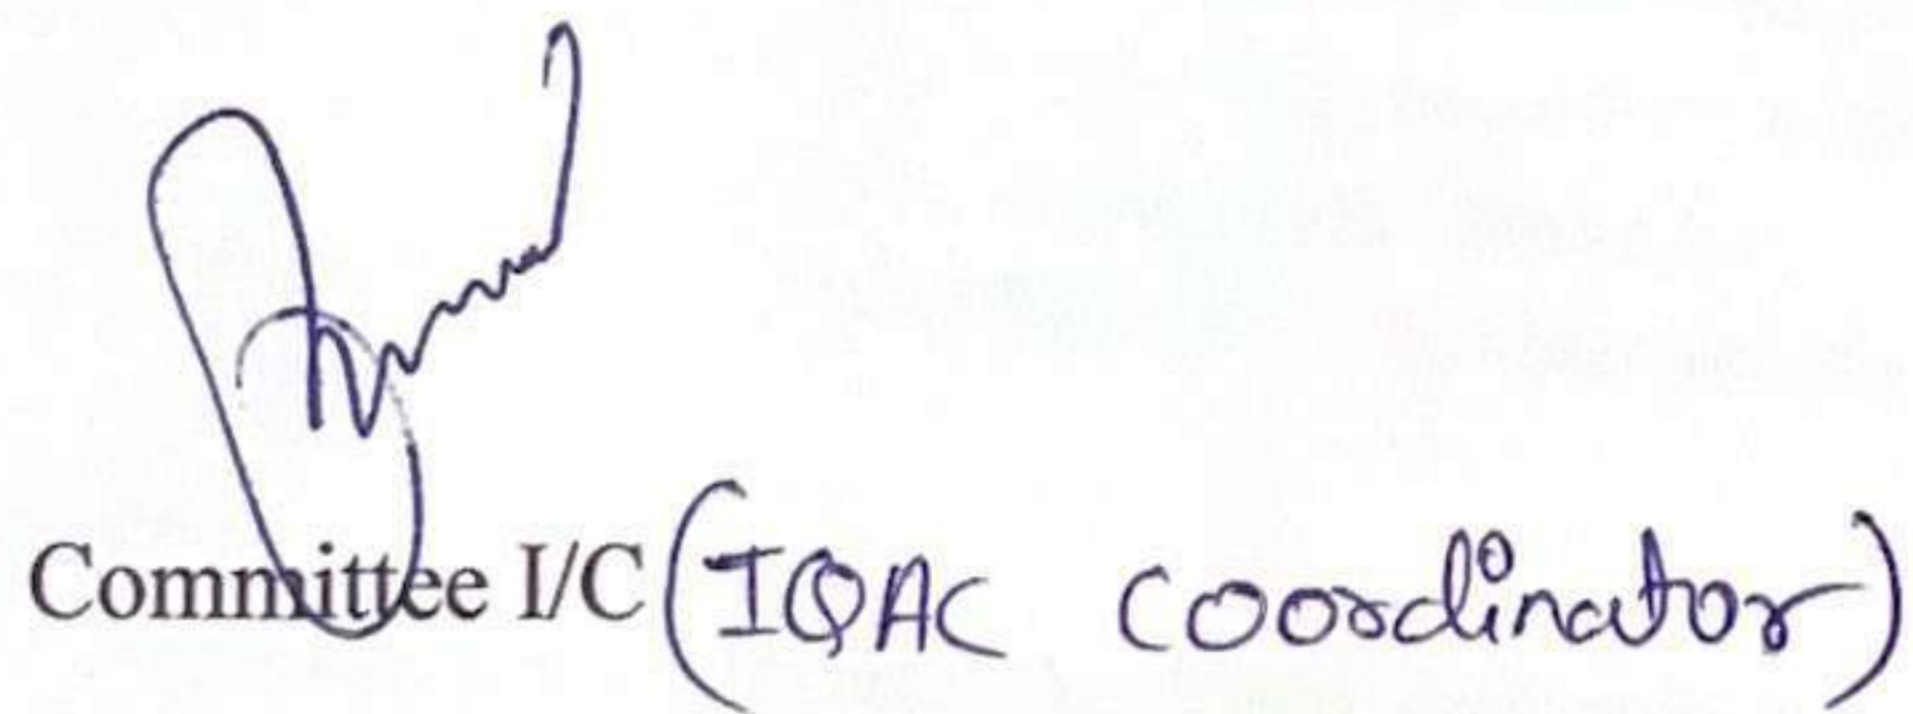 Committee I/C (IQAC Coordinator)